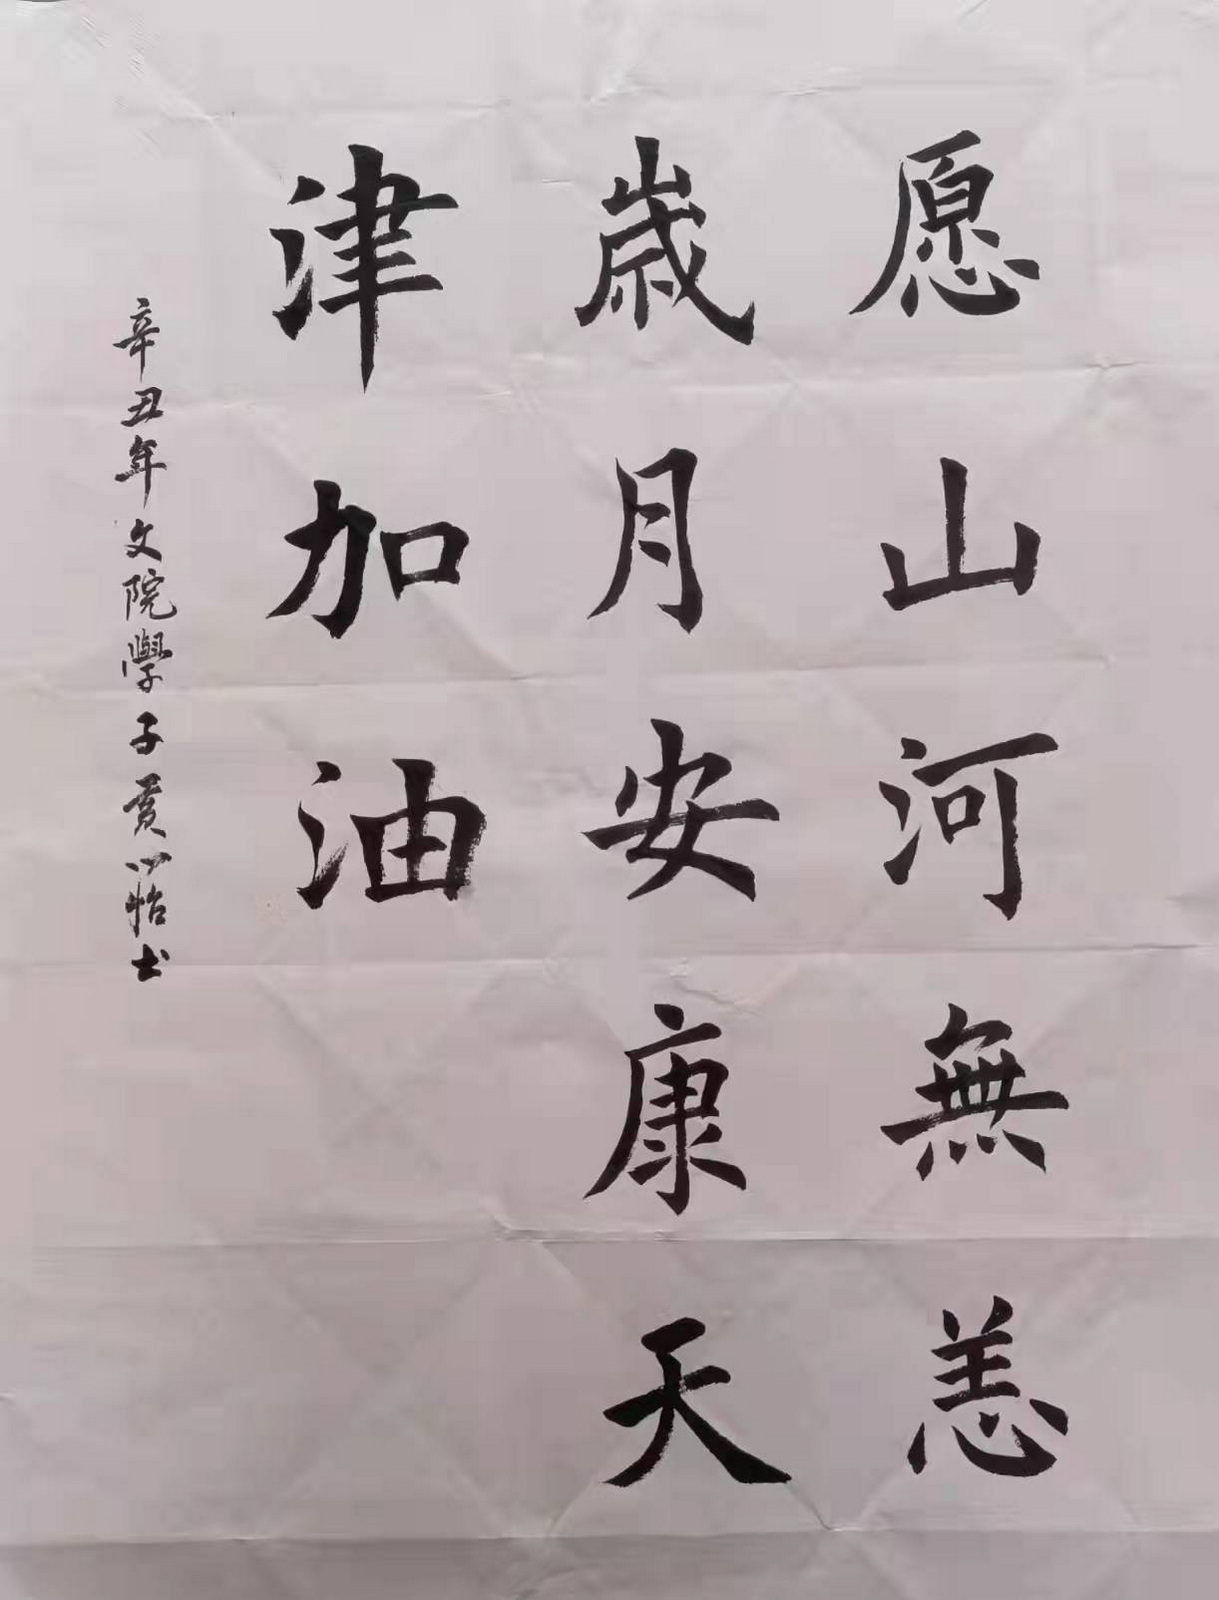 愿山河無恙
歲月安康天
津加油
辛丑年文院學子黄心怡书